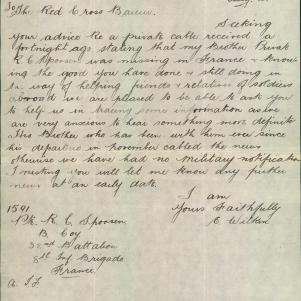 The Red Cross Bureau.
Seeking
your advice Re a private cable received a
fortnight ago stating that my Brother Private
R C Spooner was missing in France & know-
ing the good you have done & still doing in
the way of helping friends & relations of soldiers
abroad we are pleased to be able to ask you
to help us in some information as we
are very anxious to hear something more definite
His Brother who has been with him ever since
his departure in november cabled the news
otherwise we have had no military notification
Trusting you will let me know any further
news at an early date.
I am
Yours Faithfully
E Wilkin
1591
Pte R C Spooner
B Coy
32nd Battalion
8th Inf Brigade
France
A I F